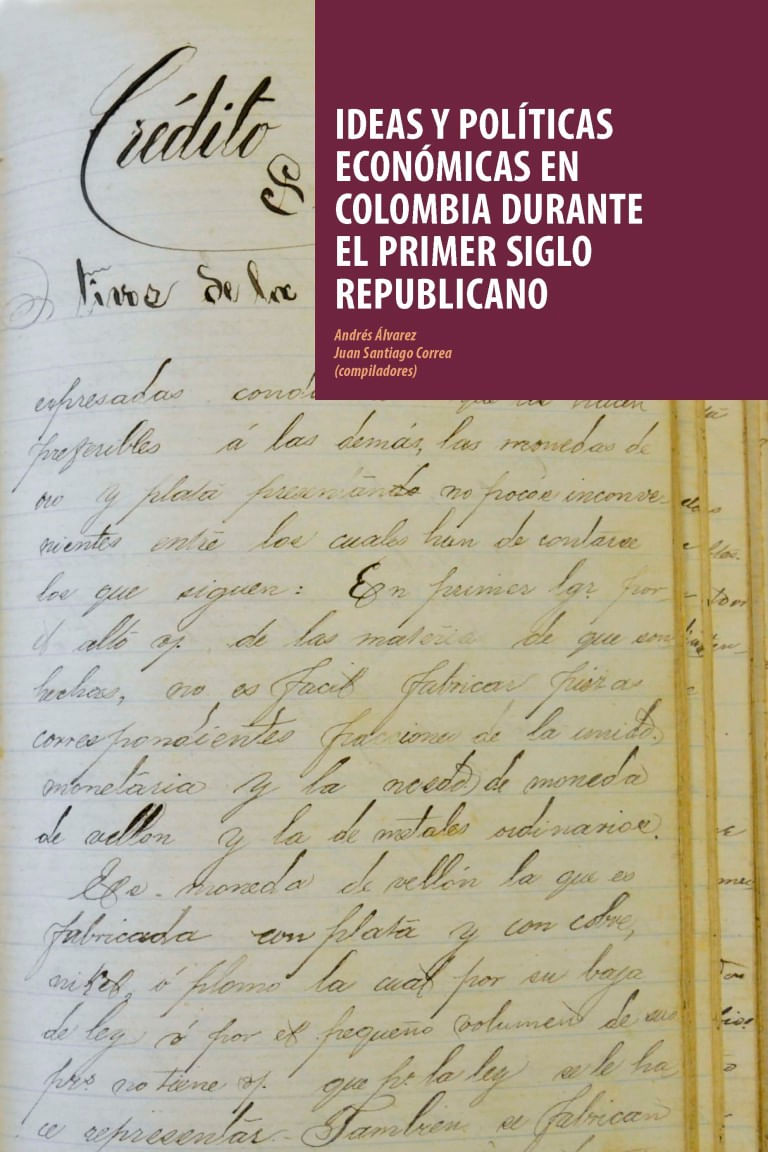 IDEAS Y POLÍTICAS
ECONÓMICAS EN
COLOMBIA DURANTE
EL PRIMER SIGLO
REPUBLICANO
Andrés Álvarez
Juan Santiago Correa
(compiladores)
Crédito
tivos de los
expresadas
preferibles á las demás, las monedas de
oro y plata presentando no pocos inconve-
nientes entre los cuales han de contarse
los que siguen: En primer lgr. por
el alto de las materias de que son
hechas, no es facil fabricar piezas
correspondientes fracciones de la unidd.
monetária y la nesdd) de moneda
de vellon y la de metales ordinarios.
Es moneda de vellón la que es
fabricada con plata y con cobre,
nikel, ó plomo la cual por su baja
de ley ó por el pequeño volumen de sus
no tiene que pr la ley se le ha
ce representar. Tambien se fabrican